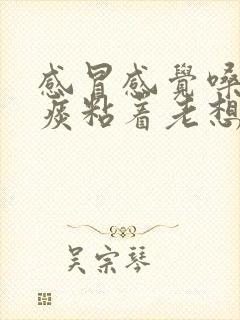 感冒感覺嗓
痰粘着老想
吴宗琴